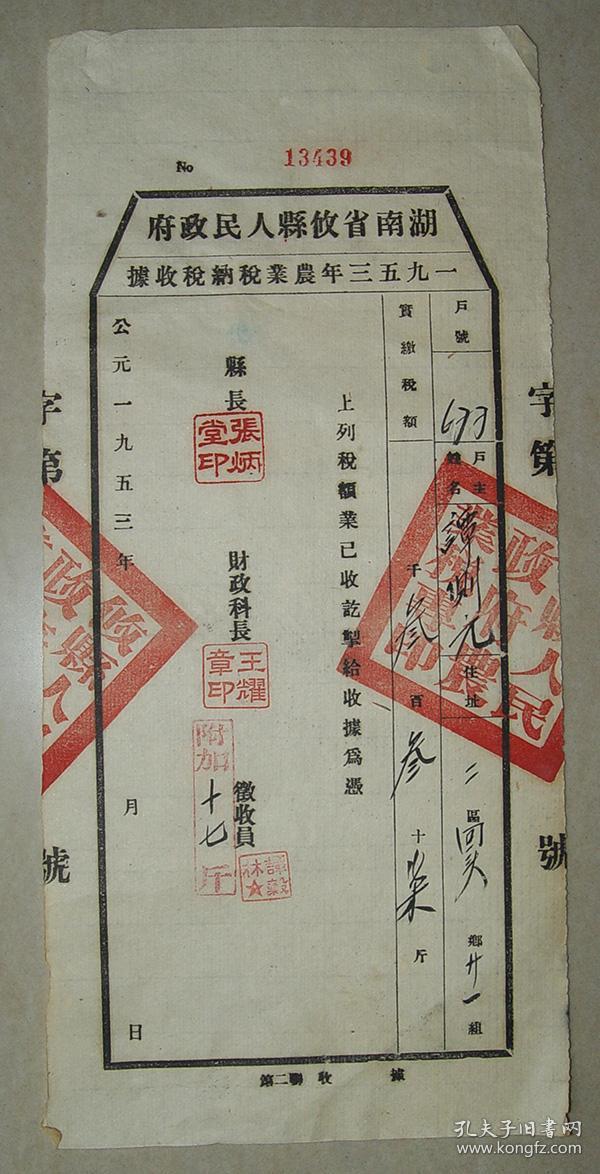 No 13439
湖南省攸縣人民政府
一九五三年農業稅納稅收據
字第
號
戶號 戶主姓名 譚則元 住址 二區 鄉廿一組
實繳稅額 千叁百叁十柒斤
上列稅額業已收訖掣給收據爲憑
縣長 張炳堂印
財政科長 王耀章印
徵收員
附加十七斤
公元一九五三年 月 日
字第
號
第二聯 收據
孔夫子旧书网
www.kongfz.com